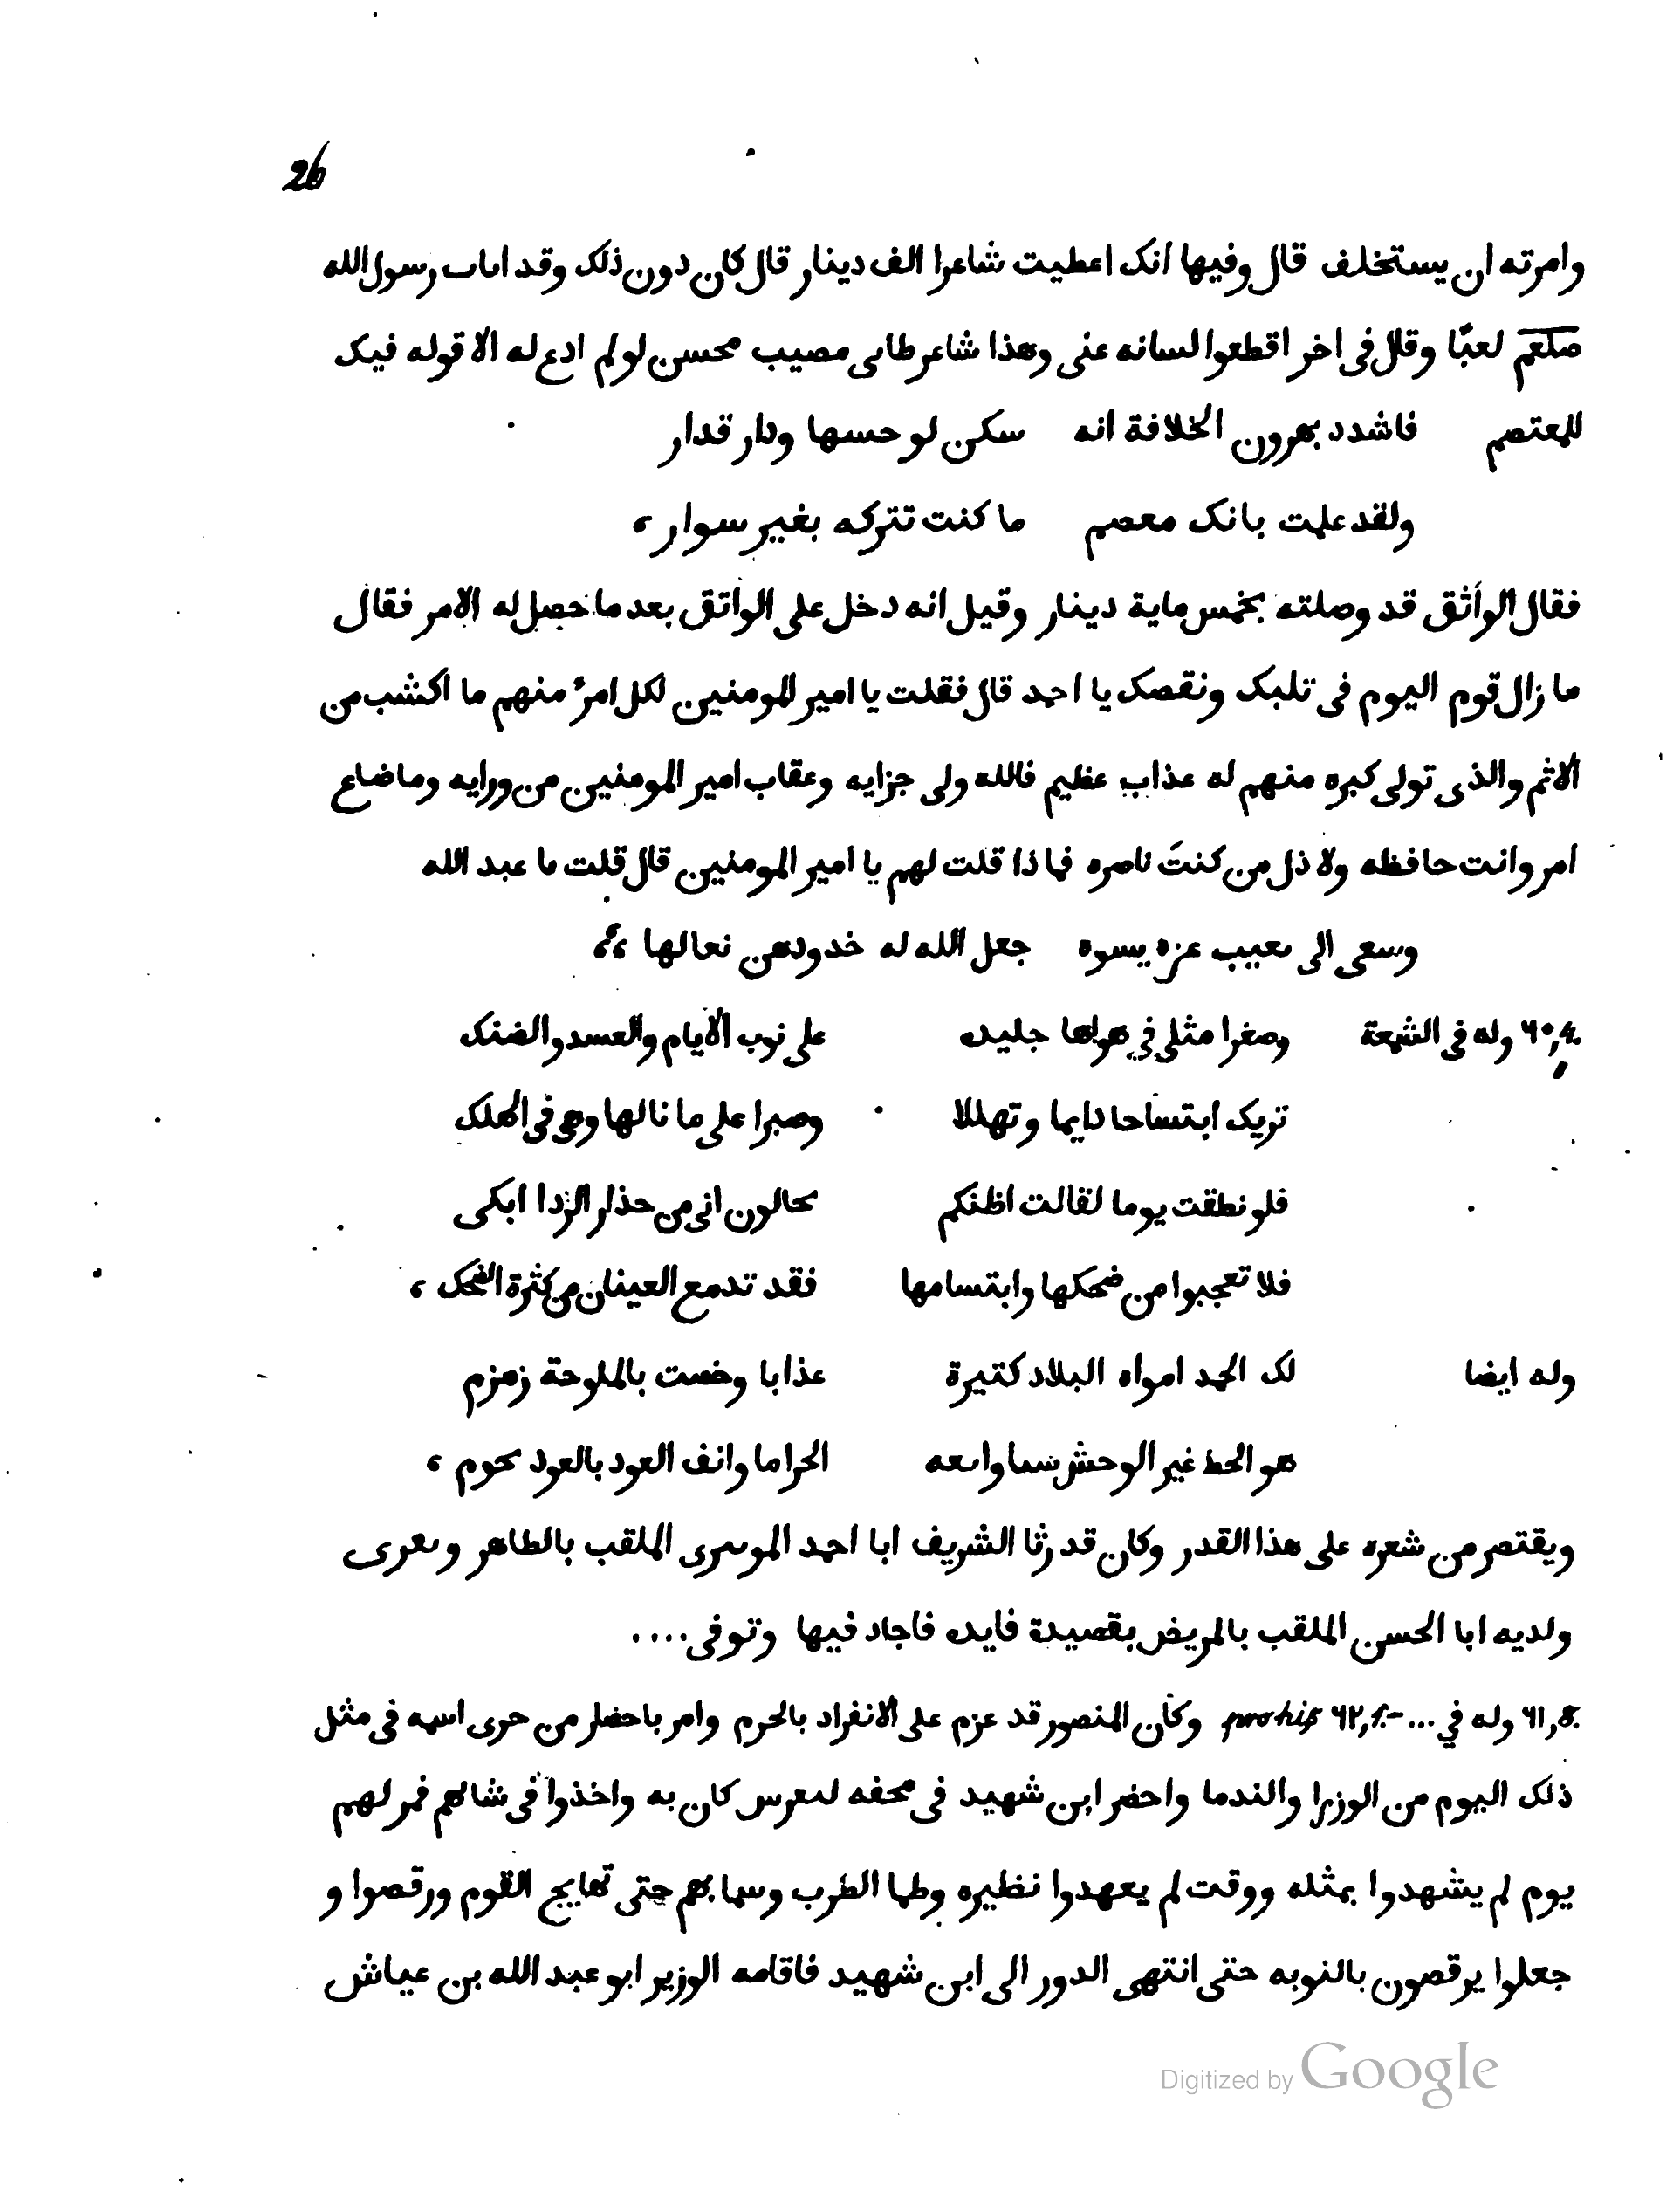 26
وامرته ان يستخلف قال وفيها انک اعطيت شاعرا الف دينار قال كان دون ذلک وقد اىاب رسول الله
صلعم لعبًا وقال فى اخر اقطعوا لسانه عنى وهذا شاعر طاىى مصيب محسن لو لم ادع له الا قوله فيک
للمعتصم فاشدد بهرون الخلافة انه سكن لوحسها ودار قدار
ولقد علمت بانک معصم ما كنت تتركه بغير سوار ،
فقال الواثق قد وصلته بخمس ماية دينار وقيل انه دخل على الواتق بعد ما حصل له الامر فقال
ما زال قوم اليوم فى تلبک ونقصک يا احمد قال فقلت يا امير المومنين لكل امرء منهم ما اكتسب من
الاثم والذى تولى كبره منهم له عذاب عظيم فالله ولى جزايه وعقاب امير المومنين من ورايه وما ضاع
امر وانت حافظه ولا ذل من كنتَ ناصره فما ذا قلت لهم يا امير المومنين قال قلت ىا عبد الله
وسعى الى ىعيب عزه ىسوه جعل الله له خدودهن نعالها
٦٠,٤. وله فى الشمعة وصفرا مثلى فى هواها جليده على نوب الايام والعسد والضنک
تريک ابتساحا دايما وتهللا وصبرا على ما نالها وهى فى الهلک
فلو نطقت يوما لقالت اظنكم تحالون انى من حذار الردا ابكى
فلا تعجبوا من ضحكها وابتسامها فقد تدمع العينان من كثرة الضحک ،
وله ايضا لک الحمد امواه البلاد كتيرة عذابا وخصت بالملوحة زمزم
هو الحظ غير الوحش الحراما وانف العود بالعود تحوم ،
ويقتصر من شعره على هذا القدر وكان قد رثا الشريف ابا احمد الموسوى الملقب بالطاهر وىعرى
ولديه ابا الحسن الملقب بالمريض بقصيدة فايده فاجاد فيها وتوفى ....
٦١,8. وله في ... –.٦٢,٢ prohis وكان المنصور قد عزم على الانفراد بالحرم وامر باحضار من حرى اسمه فى مثل
ذلک اليوم من الوزرا والندما واحضر ابن شهيد فى محفه لىىعرس كان به واخذوا فى شانهم فمر لهم
يوم لم يشهدوا بمثله ووقت لم يعهدوا نظيره وطما الطرب وسما بهم حتى تهايج القوم ورقصوا و
جعلوا يرقصون بالنوبه حتى انتهى الدور الى ابن شهيد فاقامه الوزير ابو عبد الله بن عياش
Digitized by Google